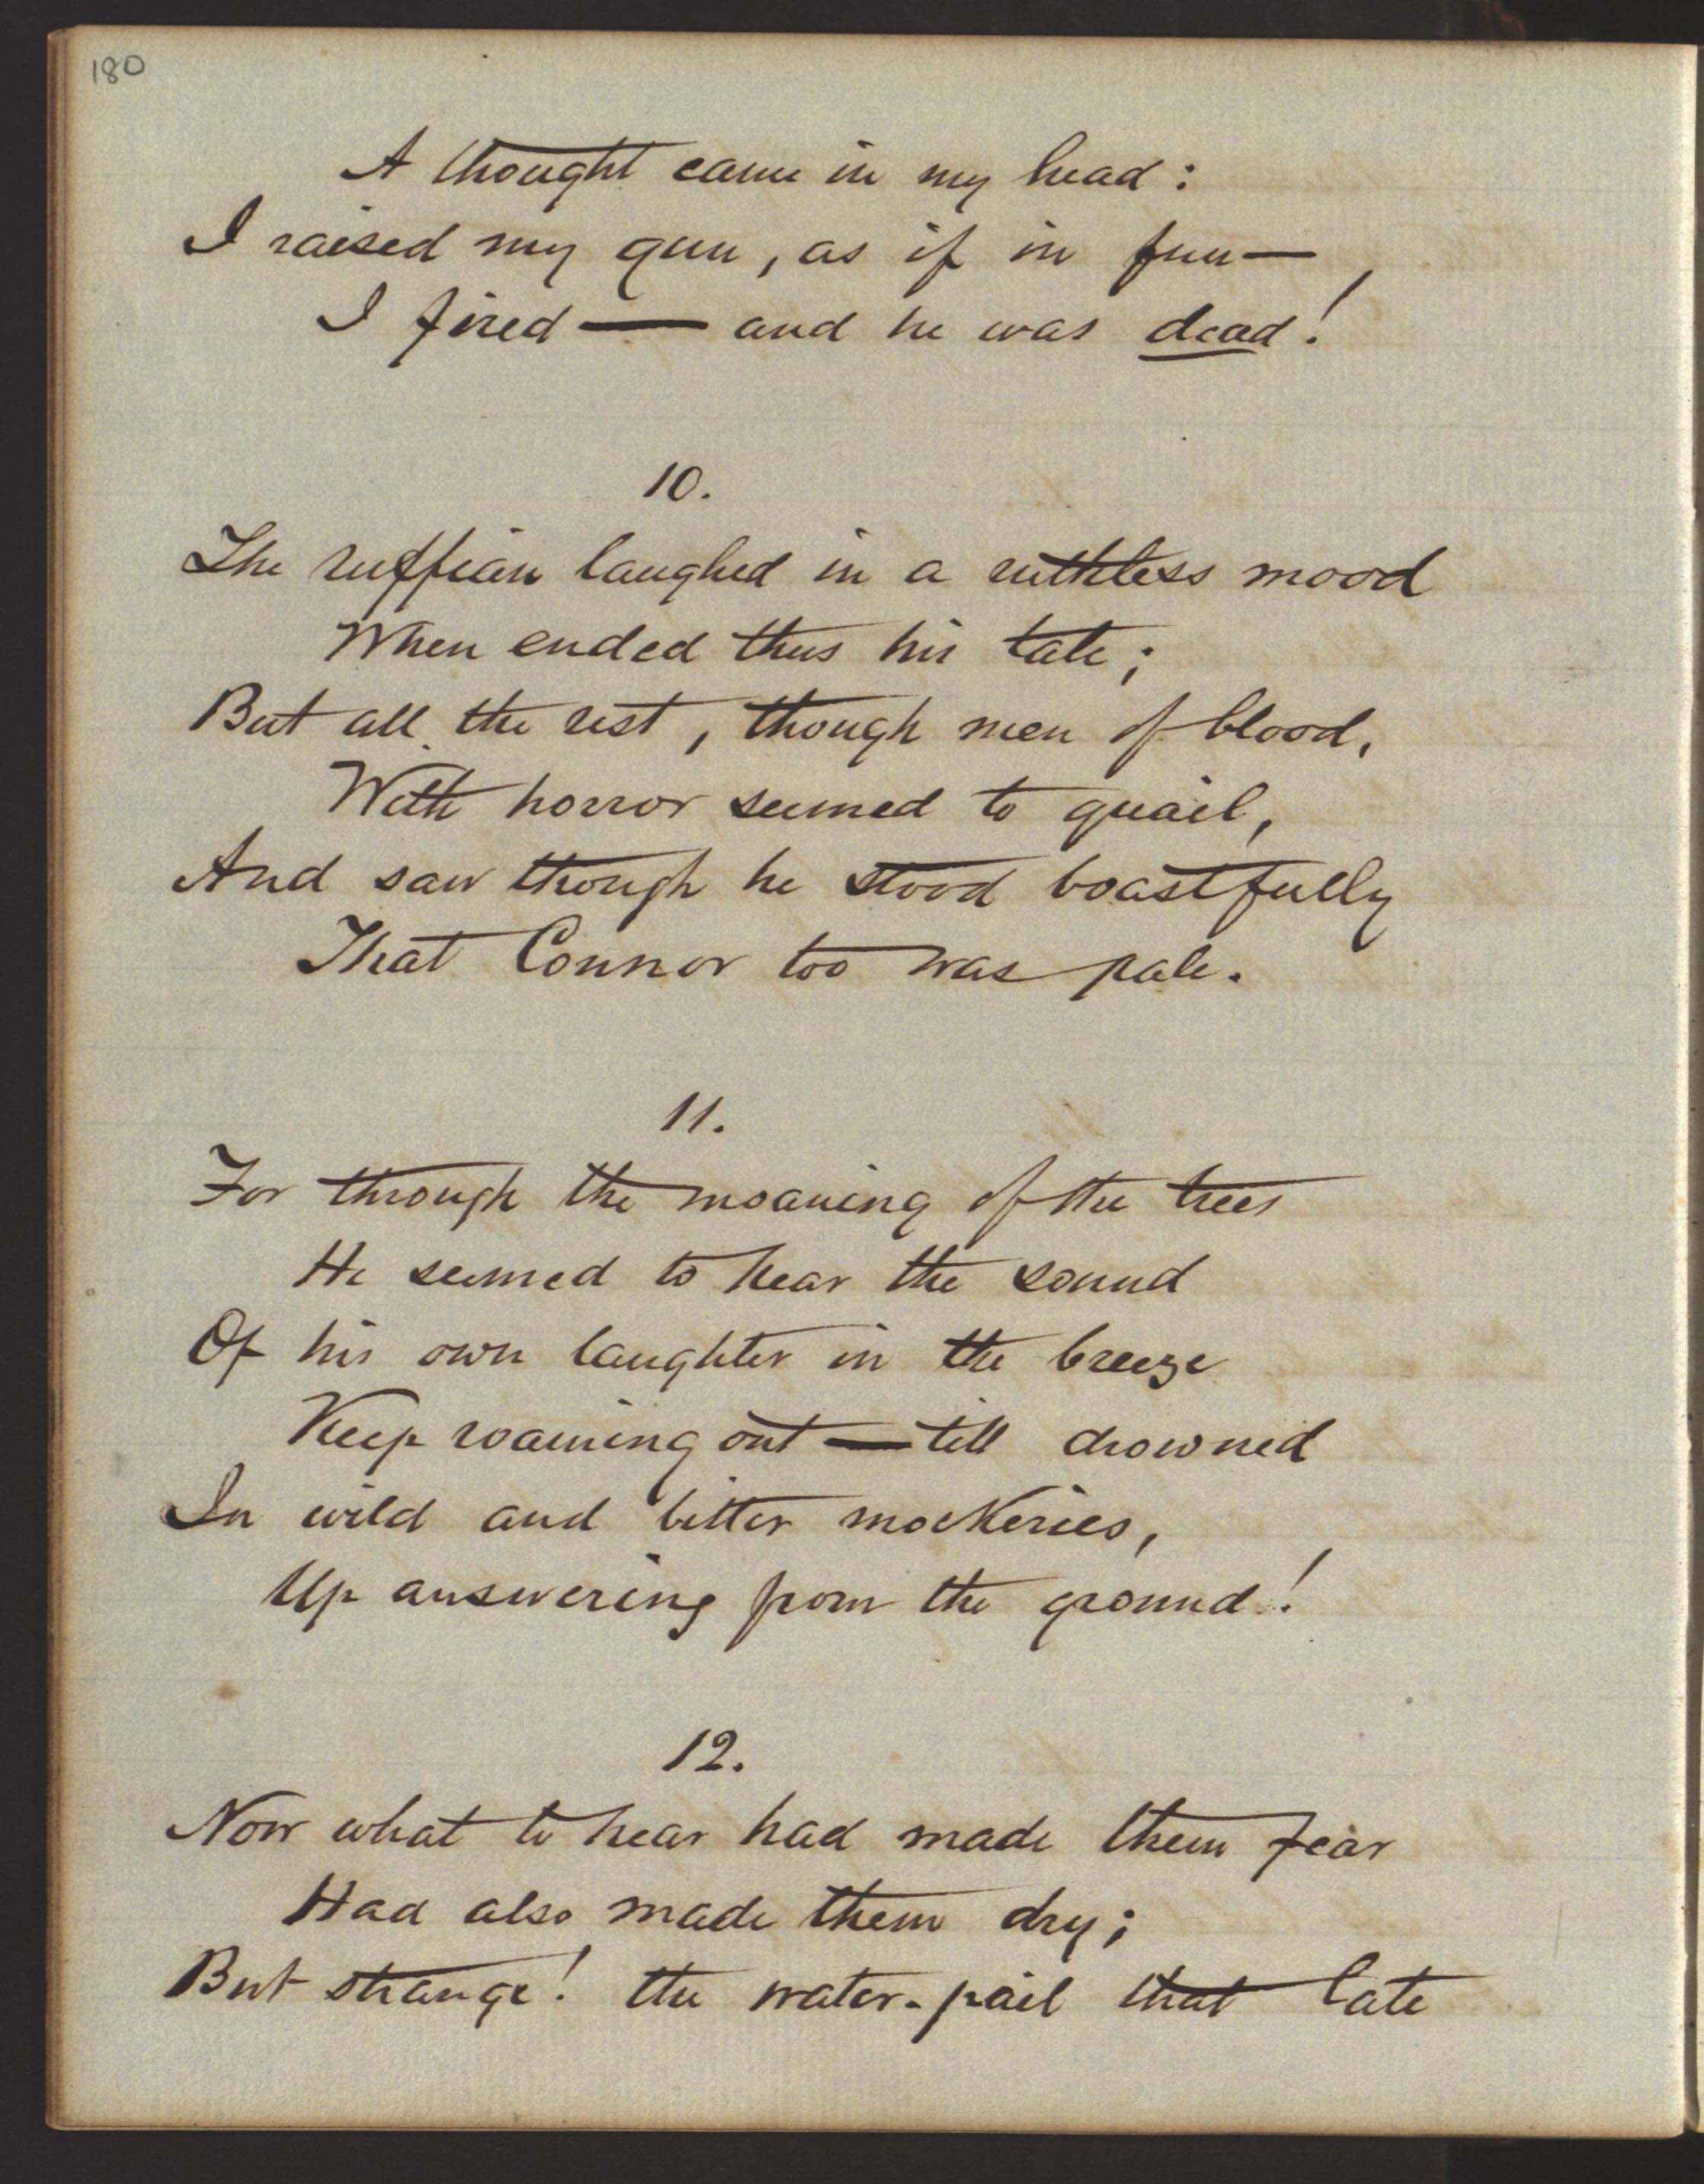 180
A thought came in my head:
I raised my gun, as if in fun—
I fired — and he was dead!
10.
The ruffian laughed in a ruthless mood
When ended thus his tale;
But all the rest, though men of blood,
With horror seemed to quail,
And saw though he stood boastfully
That Connor too was pale.
11.
For through the moaning of the trees
He seemed to hear the sound
Of his own laughter in the breeze
Keep roaming out — till drowned
In wild and bitter mockeries,
Up answering from the ground!
12.
Now what to hear had made them fear
Had also made them dry;
But strange! the water-pail that late